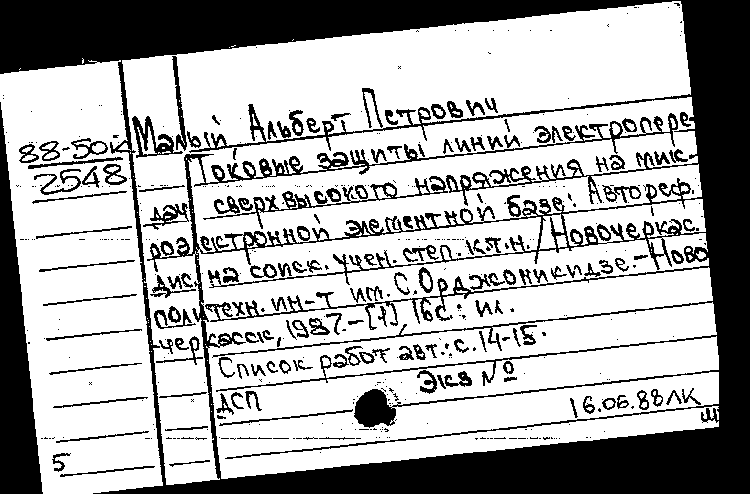 88-50к
2548
Малый Альберт Петрович
Токовые защиты линий электропере-
дач сверхвысокого напряжения на мик-
роэлектронной элементной базе: Автореф.
дис. на соиск. учен. степ. к.т.н. / Новочеркас.
политехн. ин-т им. С. Орджоникидзе.-Ново
-черкасск, 1987.-[1], 16с.: ил.
Список работ авт.: с.14-15.
Экз №
ДСП
16.05.88 ЛК
ш
5